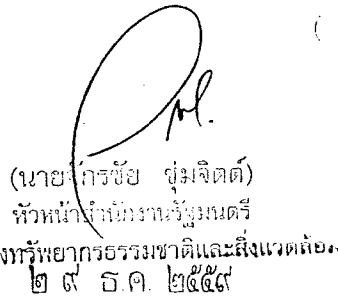 (นายจักรชัย ชุ่มจิตต์)
หัวหน้าสำนักงานรัฐมนตรี
งทรัพยากรธรรมชาติและสิ่งแวดล้อม
๒๙ ธ.ค. ๒๕๕๙